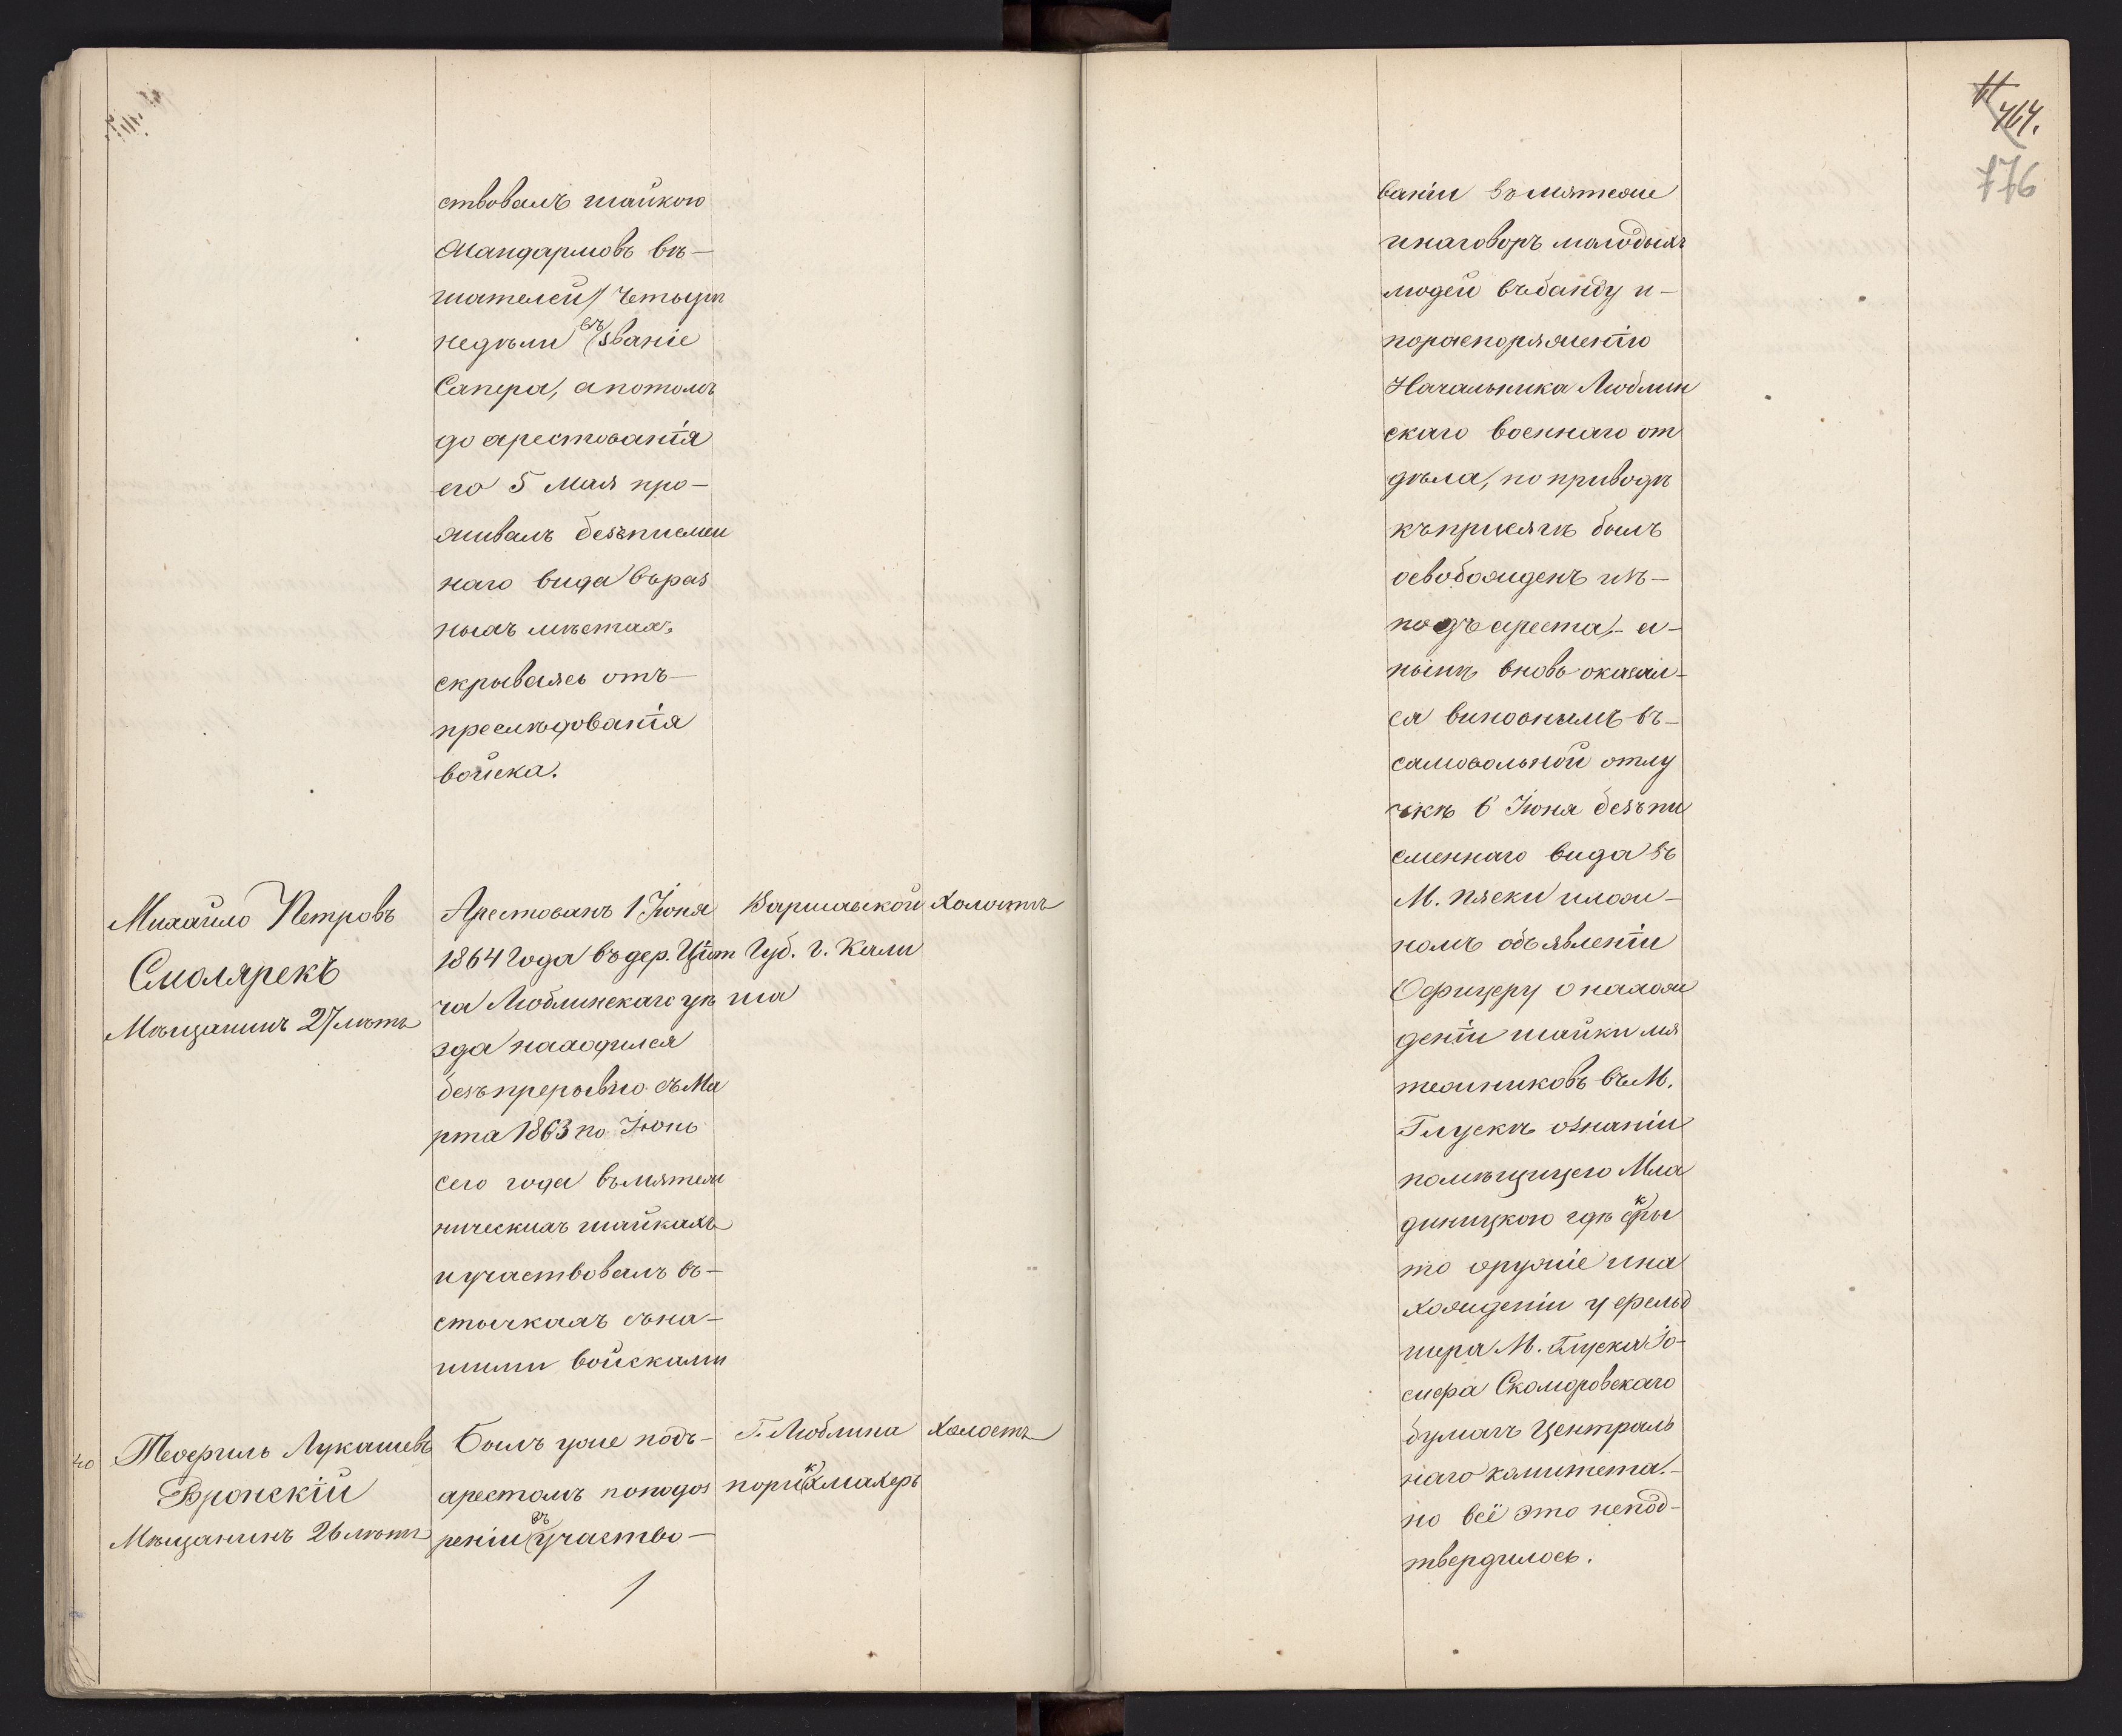 ствовалъ шайкою
жандармовъ вѣ-
шателей, четыри
недѣли въ званіе
Сапера, а потомъ
до арестованія
его 5 Мая про-
живалъ безъ писмен
наго вида въ раз
ныхъ мѣстах,
скрываясь отъ
преслѣдованія
войска.
Михайло Петровъ
Смолярекъ
Мѣщанинъ 27 лѣтъ
Арестованъ 1 Іюня
1864 года въ дер. Цѣт
ча Люблинскаго уѣ
зда находился
безъ прерывно съ Ма
рта 1863 по Іюнь
сего года въ мятеж
ническихъ шайкахъ
и участвовалъ въ-
стычкахъ съ на-
шими войсками
Варшавской
Губ. г. Кали
ша
Холостъ
40
Теофиль Лукашевъ
Вронскій
Мѣщанинъ 26 лѣтъ
Былъ уже подъ-
арестомъ по подоз
реніи въ участво-
Г. Люблина
парикмахеръ
Холостъ
464.
776
ваніи въ мятеже
и наговоръ молодыхъ
людей въ банду и-
по распоряженію
Начальника Люблин
скаго военнаго от
дѣла, по приводѣ
къ присягѣ былъ
освобожденъ изъ-
подъ ареста,- а-
нынѣ вновь оказал-
ся виновнымъ въ-
самовольной отлу
чкѣ 6 Іюня безъ пи
сменнаго вида въ
М. Пяски и лож-
номъ объявленіи
Офицеру о нахож
деніи шайки мя
тежниковъ въ М.
Глускѣ о знаніи
помѣщицею Мла
диницкою гдѣ скры
то оружіе и на
хожденіи у фельд
шера М. Глуска Іо-
сифа Скомровскаго
бумагъ Централь
наго комитета.-
но всё это непод-
твердилось.